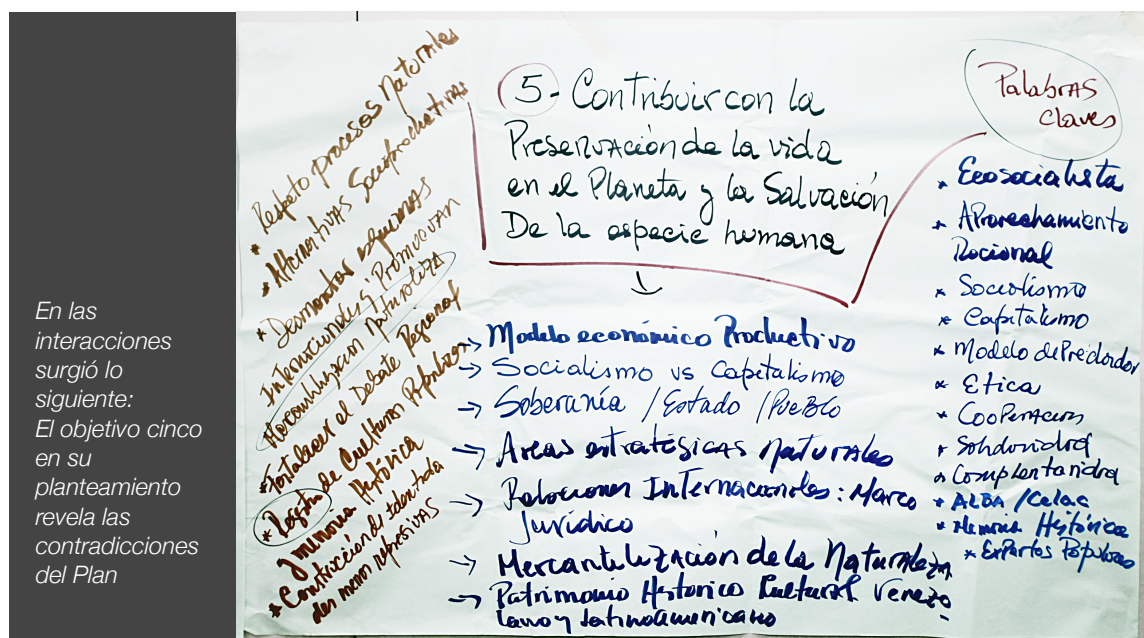 En las
interacciones
surgió lo
siguiente:
El objetivo cinco
en su
planteamiento
revela las
contradicciones
del Plan
* Respeto procesos Naturales
* Alternativas Socioproductivas
* Desmontar esquemas
Internacionales; Promuevan
Mercantilización Naturaleza
* Fortalecer el Debate Regional
* Registro de Culturas Populares
y memoria Histórica
* Construcción de identidad
des menos represivas
5- Contribuir con la
Preservación de la vida
en el Planeta y la Salvación
De la especie humana
→ Modelo económico Productivo
→ Socialismo vs Capitalismo
→ Soberanía / Estado / Pueblo
→ Areas estratégicas naturales
→ Relaciones Internacionales: Marco
Jurídico
→ Mercantilización de la Naturaleza
→ Patrimonio Historico Cultural Venezo
lano y latinoamericano
Palabras
Claves
* Ecosocialista
* Aprovechamiento
Racional
* Socialismo
* Capitalismo
* Modelo depredador
* Etica
* Cooperacion
* Solidaridad
* Complentaridad
* ALBA / Celac
* Memoria Histórica
* Expertos Populares